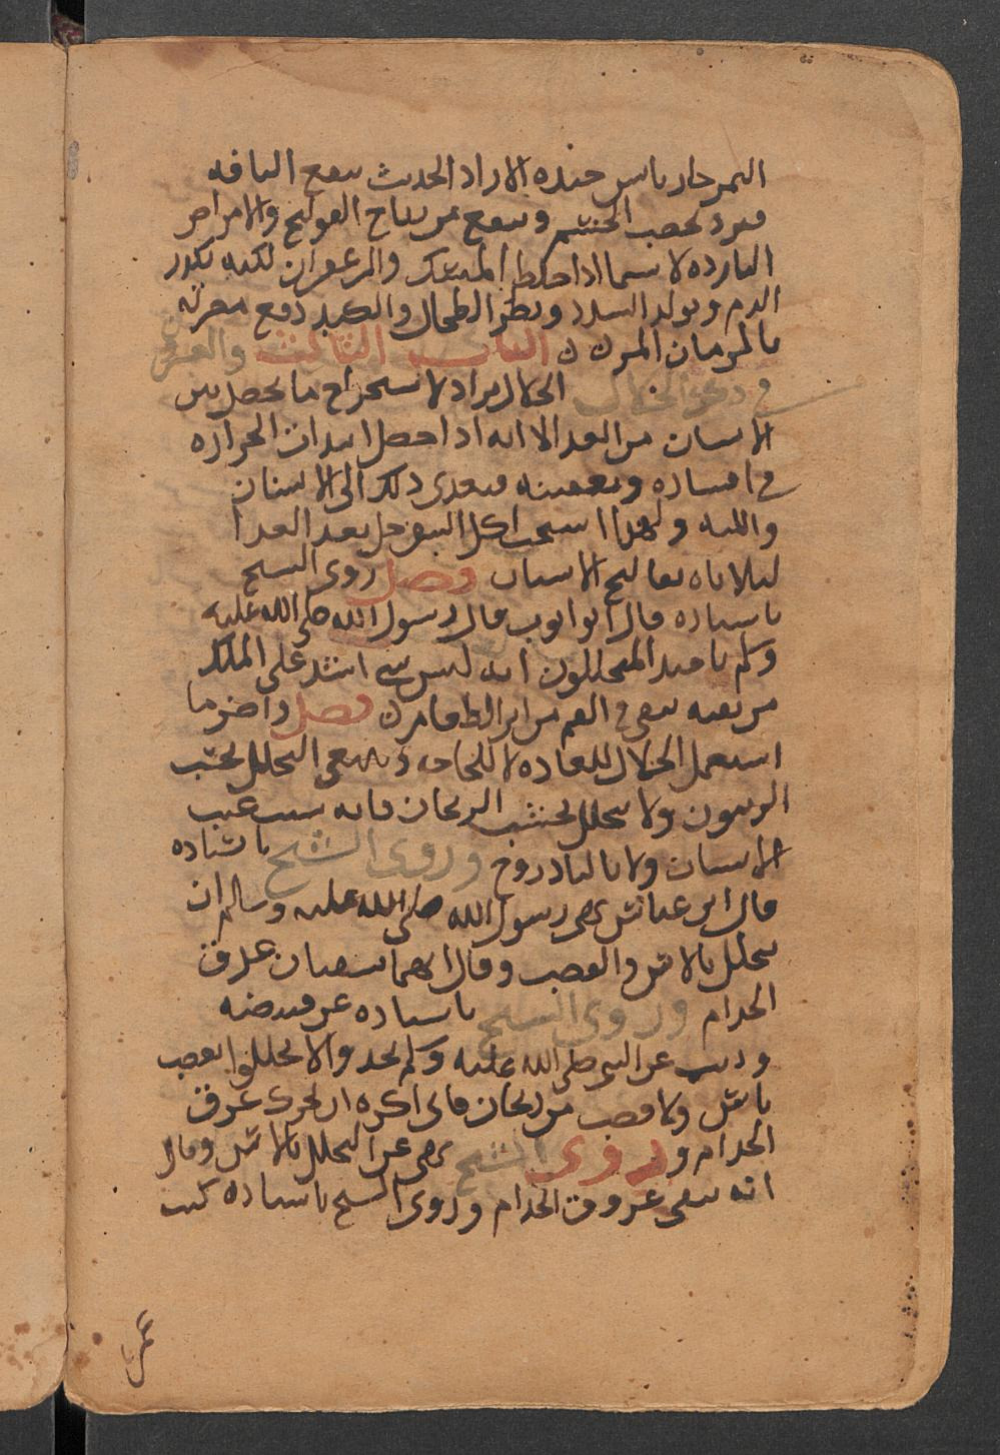 التمر حار يابس جيده الازاد الحديث ينفع الناقه
مبرد يخصب الجسم وينفع من رياح القولنج والامراض
البارده لا سيما اذا خلط المسك والزعفران لكنه يكدر
الدم ويولد السدد ويضر الطحال والكبد دفع مضرته
بالرمان المز الباب الثالث والعشرون
في ذكر الخلال الخلال يراد لاستخراج ما يحصل بين
الاسنان من الغدا لانه اذا حصل ابتدات الحراره
في افساده وتعفينه فيعدى ذلك الى الاسنان
واللثه ولهذا استحب اكل السفرجل بعد الغدا
ليلا بقايا الاسنان فصل روى الشيخ
باسناده قال ابو ايوب قال رسول الله صلى الله عليه
وسلم يا حبذا المتخللون انه ليس شي اشد على الملك
من بقيه تبقى في الفم من اثر الطعام فصل واضر ما
استعمل الخلال للعاده لا للحاجه وينبغي التخلل بخشب
الزيتون ولا يتخلل بخشب الريحان فانه يسبب عيب
الاسنان ولا بالباذروج وروى الشيخ باسناده
قال ابن عباس نهى رسول الله صلى الله عليه وسلم ان
يتخلل بالاس والقصب وقال انهما يسقيان عرق
الجذام وروى الشيخ باسناده عن قبيصه
وذيب عن النبي صلى الله عليه وسلم والا تخللوا بقصب
باس ولا قصب من ريحان فاني اكره ان يحرك عرق
الجذام وروى الشيخ نهى عن التخلل بالاس وقال
انه يسقى عروق الجذام وروى الشيخ باسناده كتب
عمر